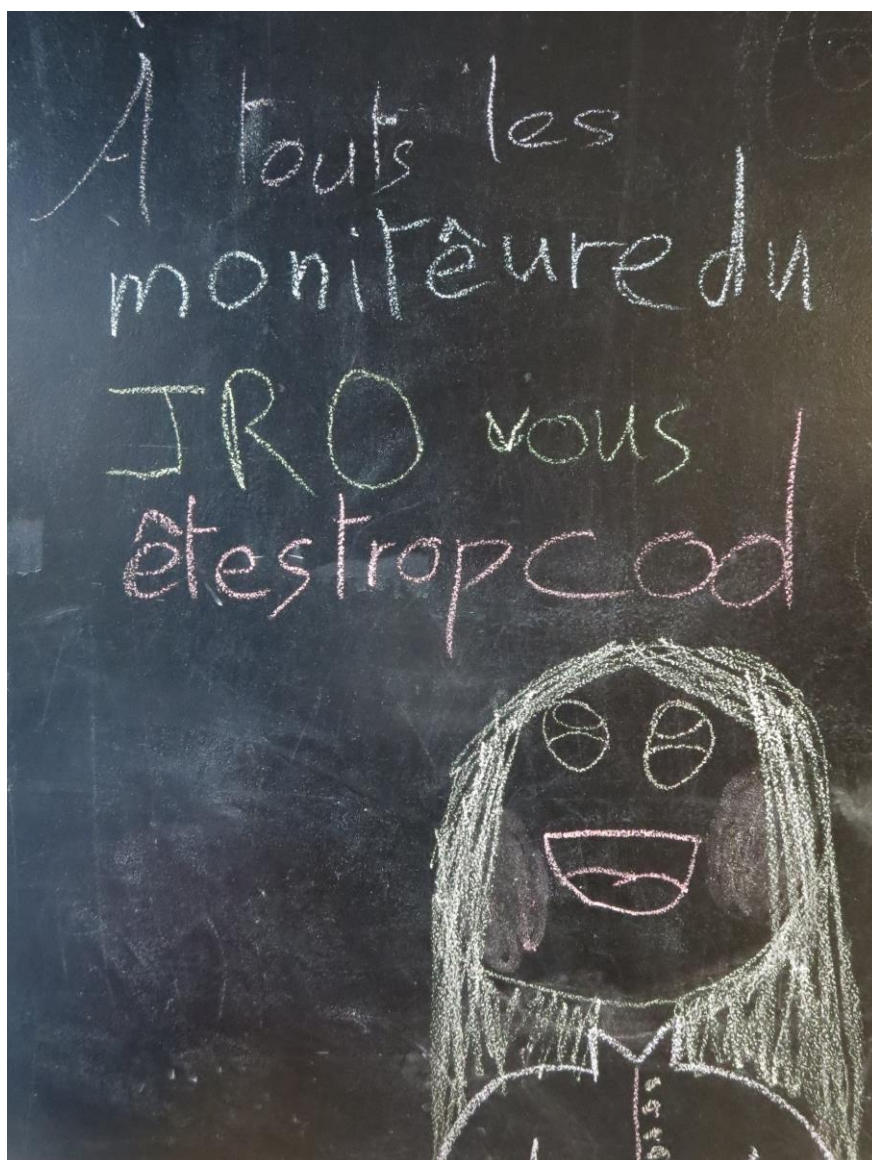 À touts les
moniteûre du
JRO vous
êtes trop cool